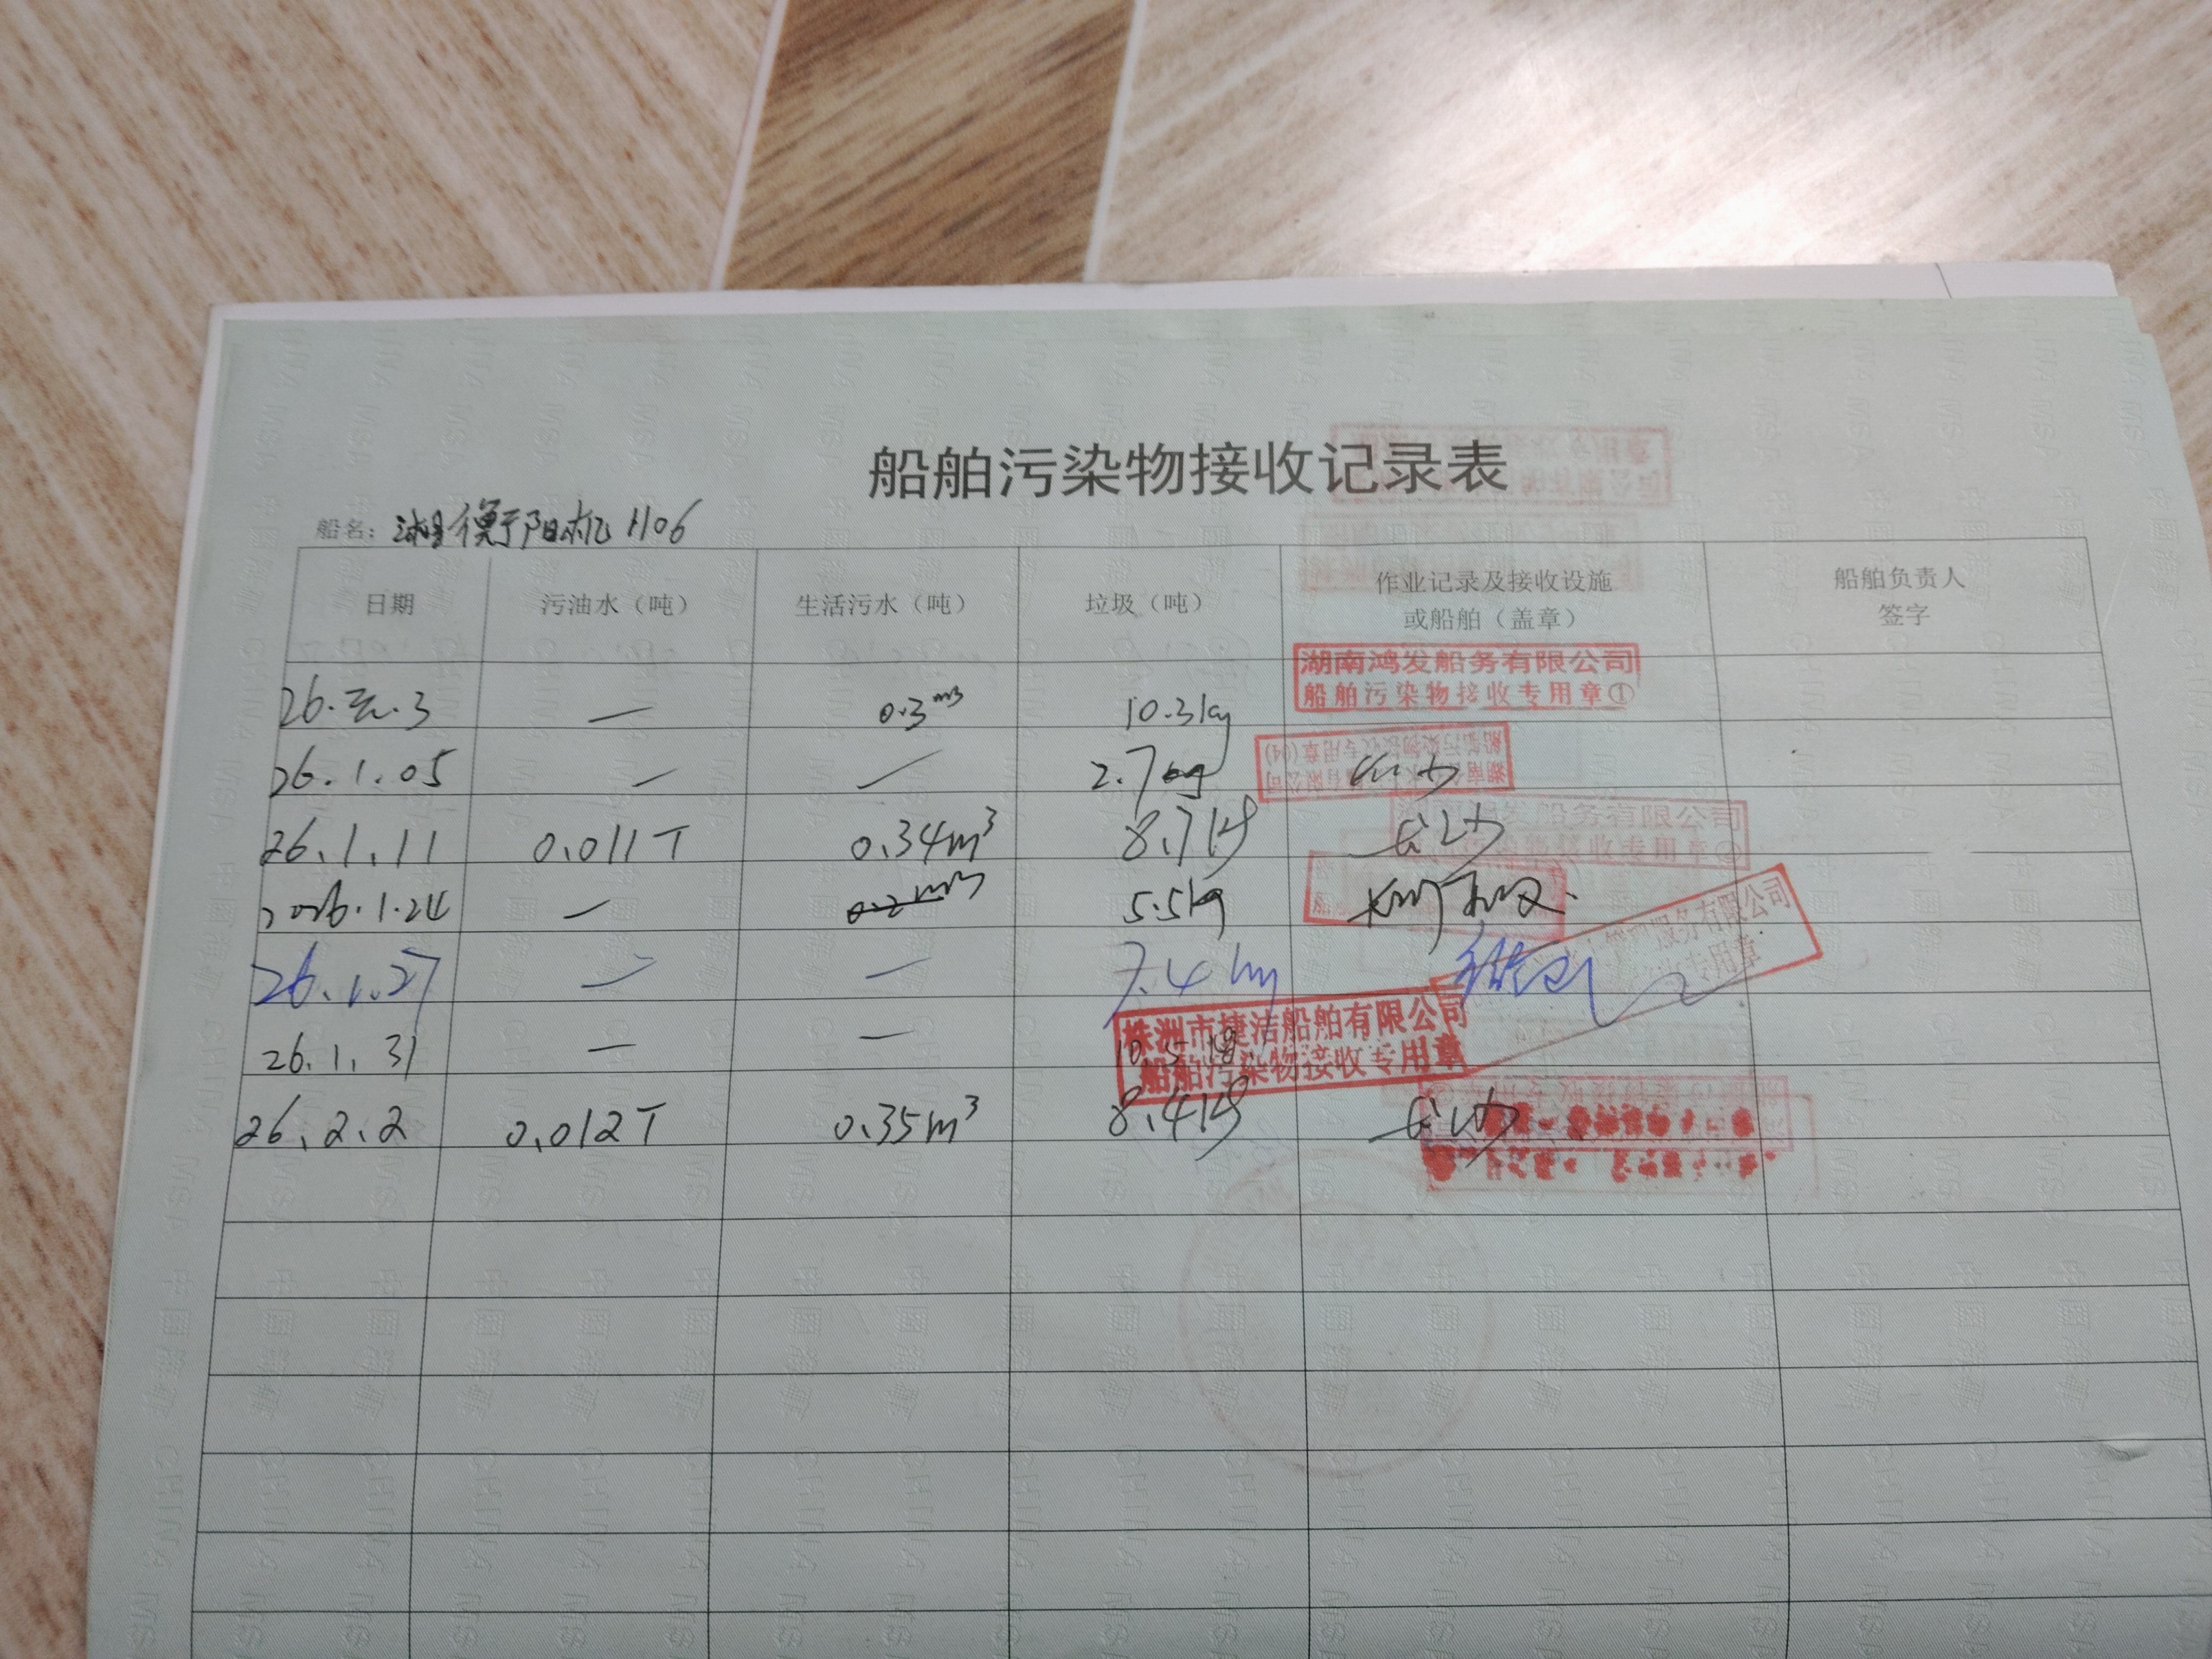 船舶污染物接收记录表
船名：湖衡阳机1106
日期 污油水（吨） 生活污水（吨） 垃圾（吨） 作业记录及接收设施或船舶（盖章） 船舶负责人签字
26.元.3 — 0.3m³ 10.3kg
湖南鸿发船务有限公司
船舶污染物接收专用章①
26.1.05 — — 2.7kg
船舶污染物接收专用章(04)
26.1.11 0.011T 0.34m³ 8.7kg
船务有限公司
接收专用章
2026.1.24 — 5.5kg
26.1.27 — — 7.4kg
服务有限公司
专用章
26.1.31 — — 10.5kg
株洲市捷洁船舶有限公司
船舶污染物接收专用章
26.2.2 0.012T 0.35m³ 8.4kg
中国海事
CHINA MSA